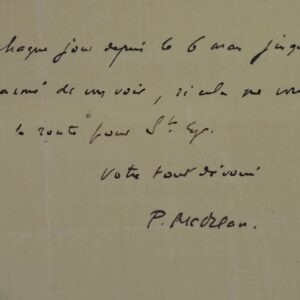 chaque jour depuis le 6 mars jusqu
de vous voir, si cela ne vous
la route pour St Cyr.
Votre tout dévoué
P. MacOrlan.